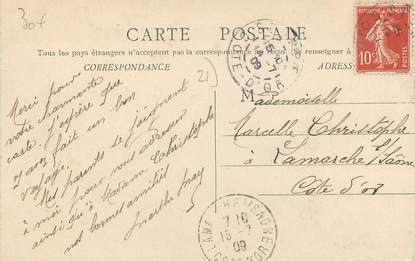 307
CARTE POSTALE
Tous les pays étrangers n'acceptent pas la correspondance au recto. Se renseigner à
CORRESPONDANCE
ADRES
21)
Merci pour
votre charmante
carte. J'espère que
avez fait un bon
voyage.
Mes parents se joignent
à moi pour vous adresser
ainsi qu'à Madame Christophe
nos bonnes amitiés
Marthe
Mademoiselle
Marcelle Christophe
à Lamarche s/ Saône
Côte d'or
CÔTE-D'OR
10c
POSTES
7 10
15 -7
09